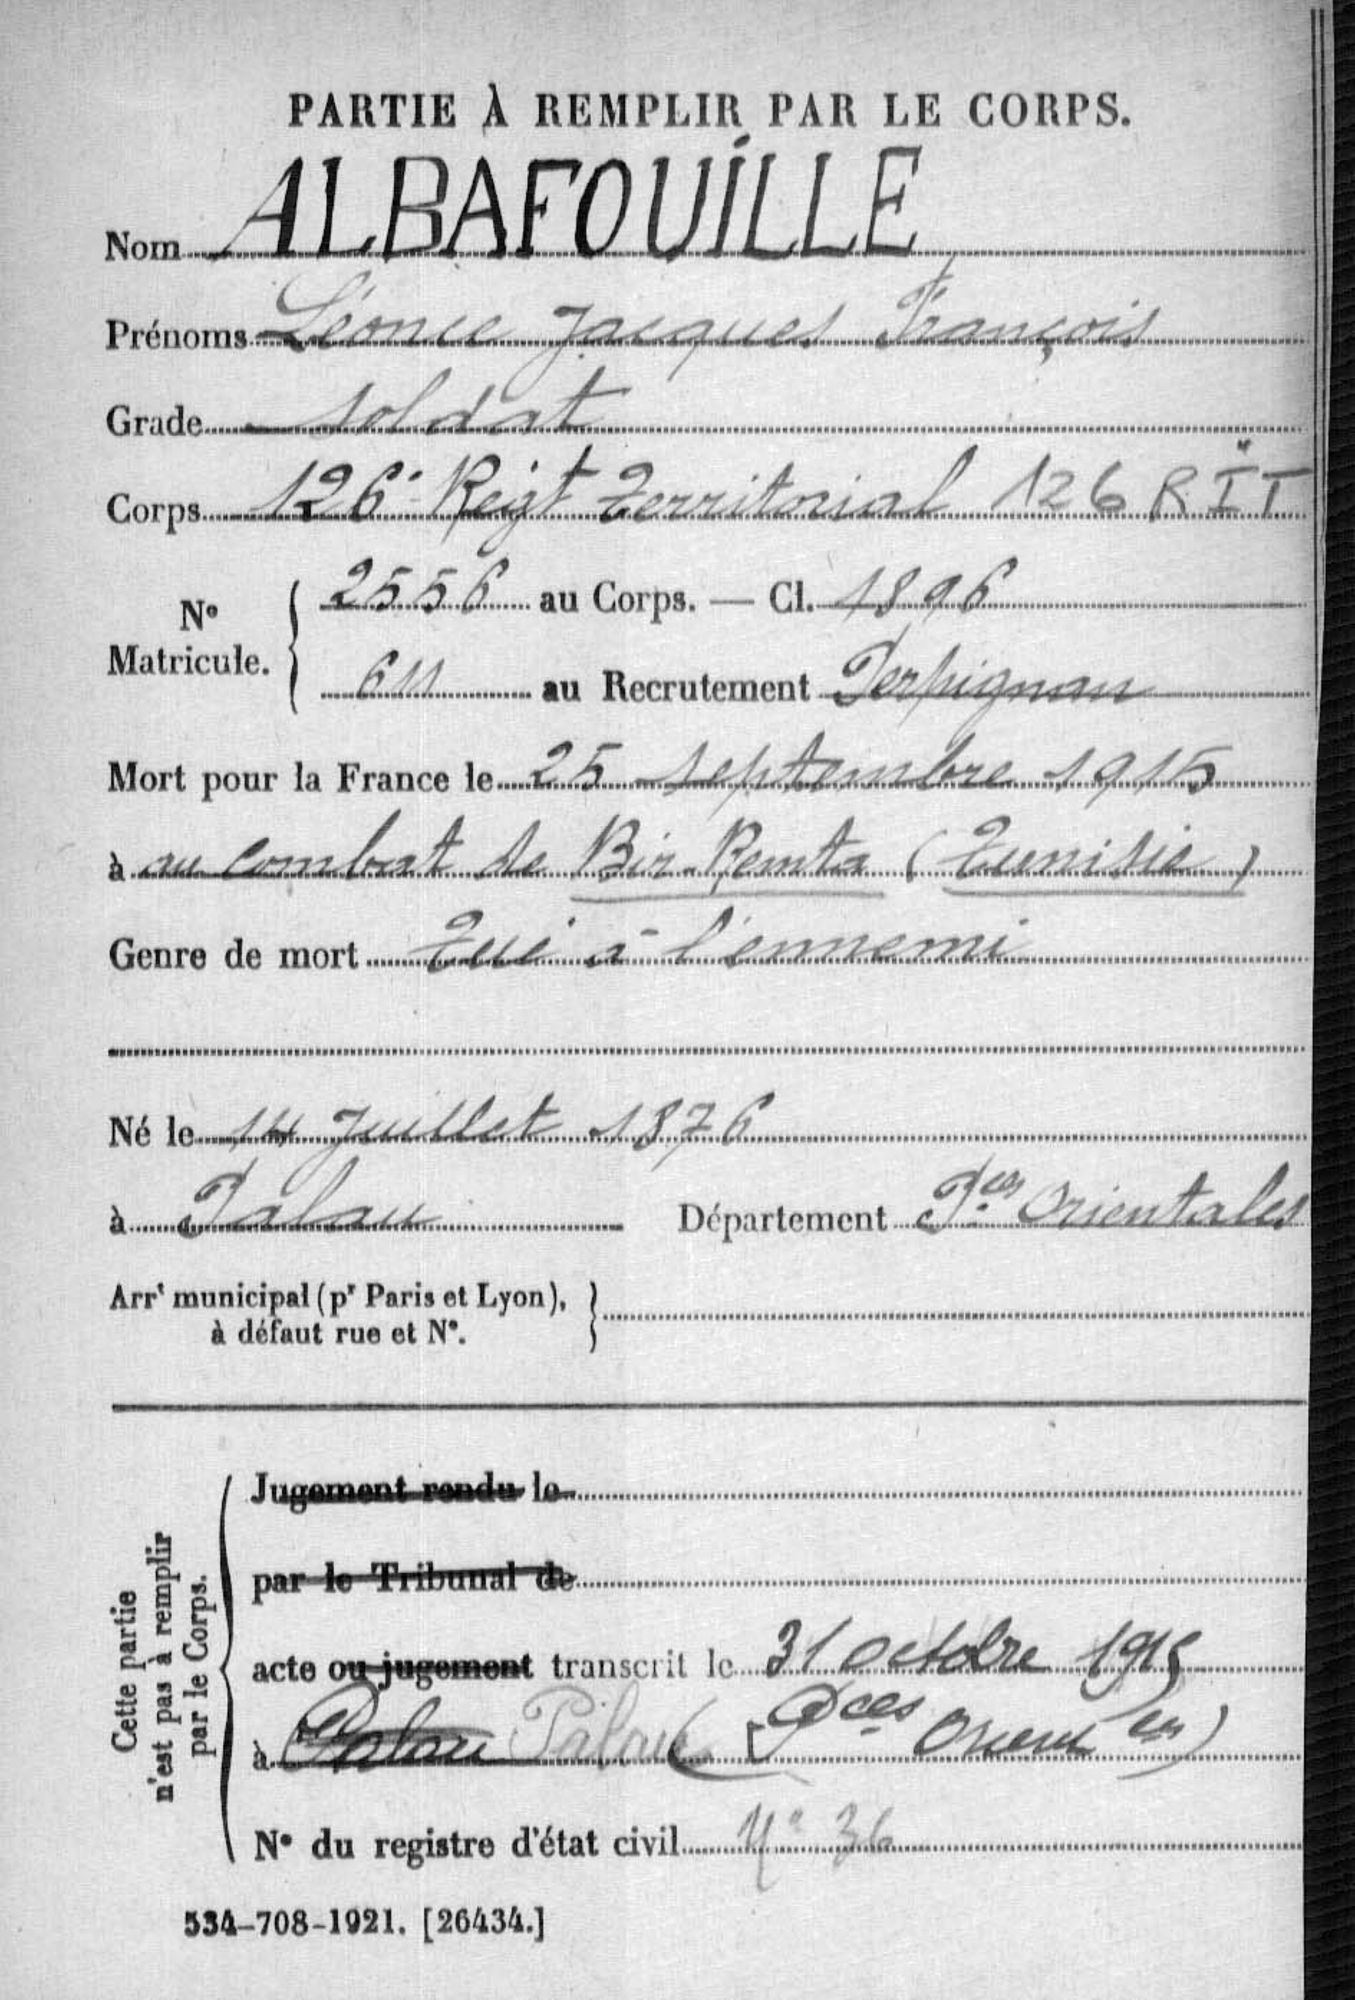 PARTIE À REMPLIR PAR LE CORPS.
Nom ALBAFOUILLE
Prénoms Léonce Jacques François
Grade soldat
Corps 126e Régt Territorial 126 R I T
No Matricule. { 2556 au Corps. — Cl. 1896
611 au Recrutement Perpignan
Mort pour la France le 25 septembre 1915
à au combat de Bir-Remta (Tunisie)
Genre de mort Tué à l'ennemi
Né le 14 Juillet 1876
à Palau Département P.ces Orientales
Arrt municipal (pr Paris et Lyon), }
à défaut rue et No.
Cette partie
n'est pas à remplir
par le Corps.
Jugement rendu le
par le Tribunal de
acte ou jugement transcrit le 31 octobre 1915
à Palau Palau (Pces Orient les)
No du registre d'état civil No 36
534-708-1921. [26434.]